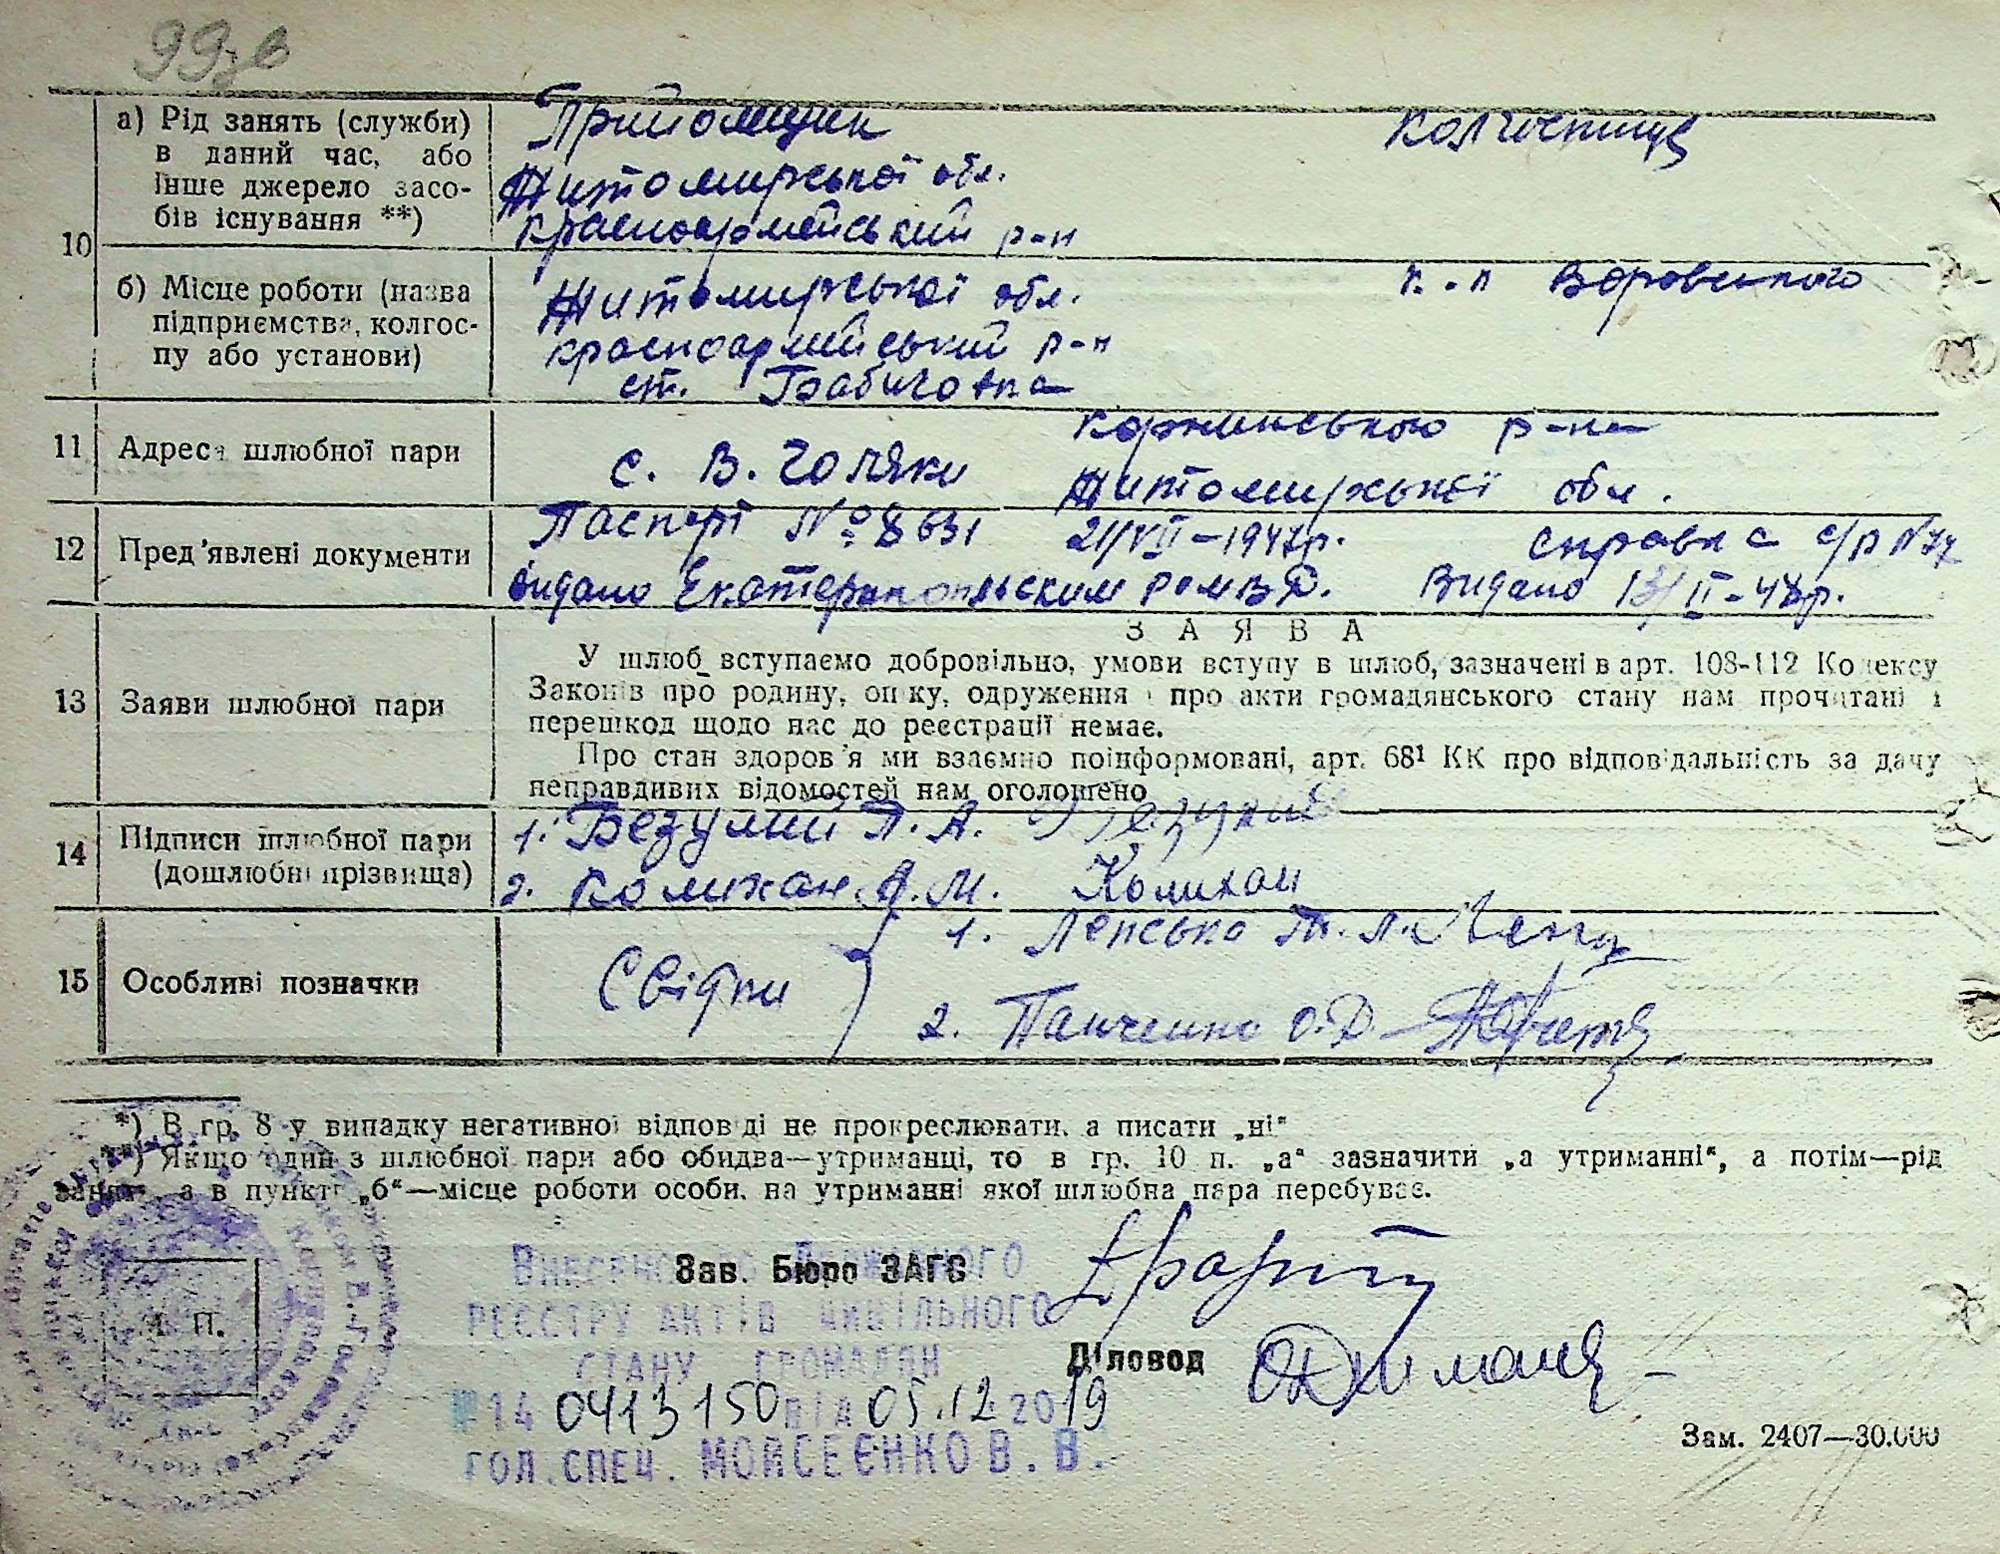 99зв
а) Рід занять (служби) в даний час, або інше джерело засо-бів існування **)
Прийомщик
Житомирської обл.
Красноармейський р-н
Колгоспниця
10
б) Місце роботи (назва підприємства, колгос-пу або установи)
Житомирської обл.
красноармийський р-н
ст.
к-п Воровського
11 Адреса шлюбної пари
с. В. Голяки
Корнинського р-на
Житомирської обл.
12 Пред'явлені документи
Паспорт № 8631 21/VII-1947р.
видано Екатеринопольським РОМВД.
справка с/р №
Видано 13/II-48р.
13 Заяви шлюбної пари
ЗАЯВА
У шлюб вступаємо добровільно, умови вступу в шлюб, зазначені в арт. 108-112 Кодексу
Законів про родину, опіку, одруження і про акти громадянського стану нам прочитані і
перешкод щодо нас до реєстрації немає.
Про стан здоров'я ми взаємно поінформовані, арт. 68¹ КК про відповідальність за дачу
неправдивих відомостей нам оголошено
14 Підписи шлюбної пари (дошлюбні прізвища)
1. Безумний П. А.
2. Колихан А. М. Колихан
15 Особливі позначки
Свідки
1. Лепсько
2. Панченко О. Д.
*) В гр. 8 у випадку негативної відповіді не прокреслювати, а писати „ні"
**) Якщо один з шлюбної пари або обидва—утриманці, то в гр. 10 п. „а" зазначити „а утриманні", а потім—рід
занять, а в пункті „б"—місце роботи особи, на утриманні якої шлюбна пара перебуває.
М. П.
Зав. Бюро ЗАГС
Внесено до Державного
реєстру актів цивільного
стану громадян
№ 14 0413150 від 05.12.2019
гол. спец. Мойсеєнко В. В.
Діловод
Зам. 2407—30.000